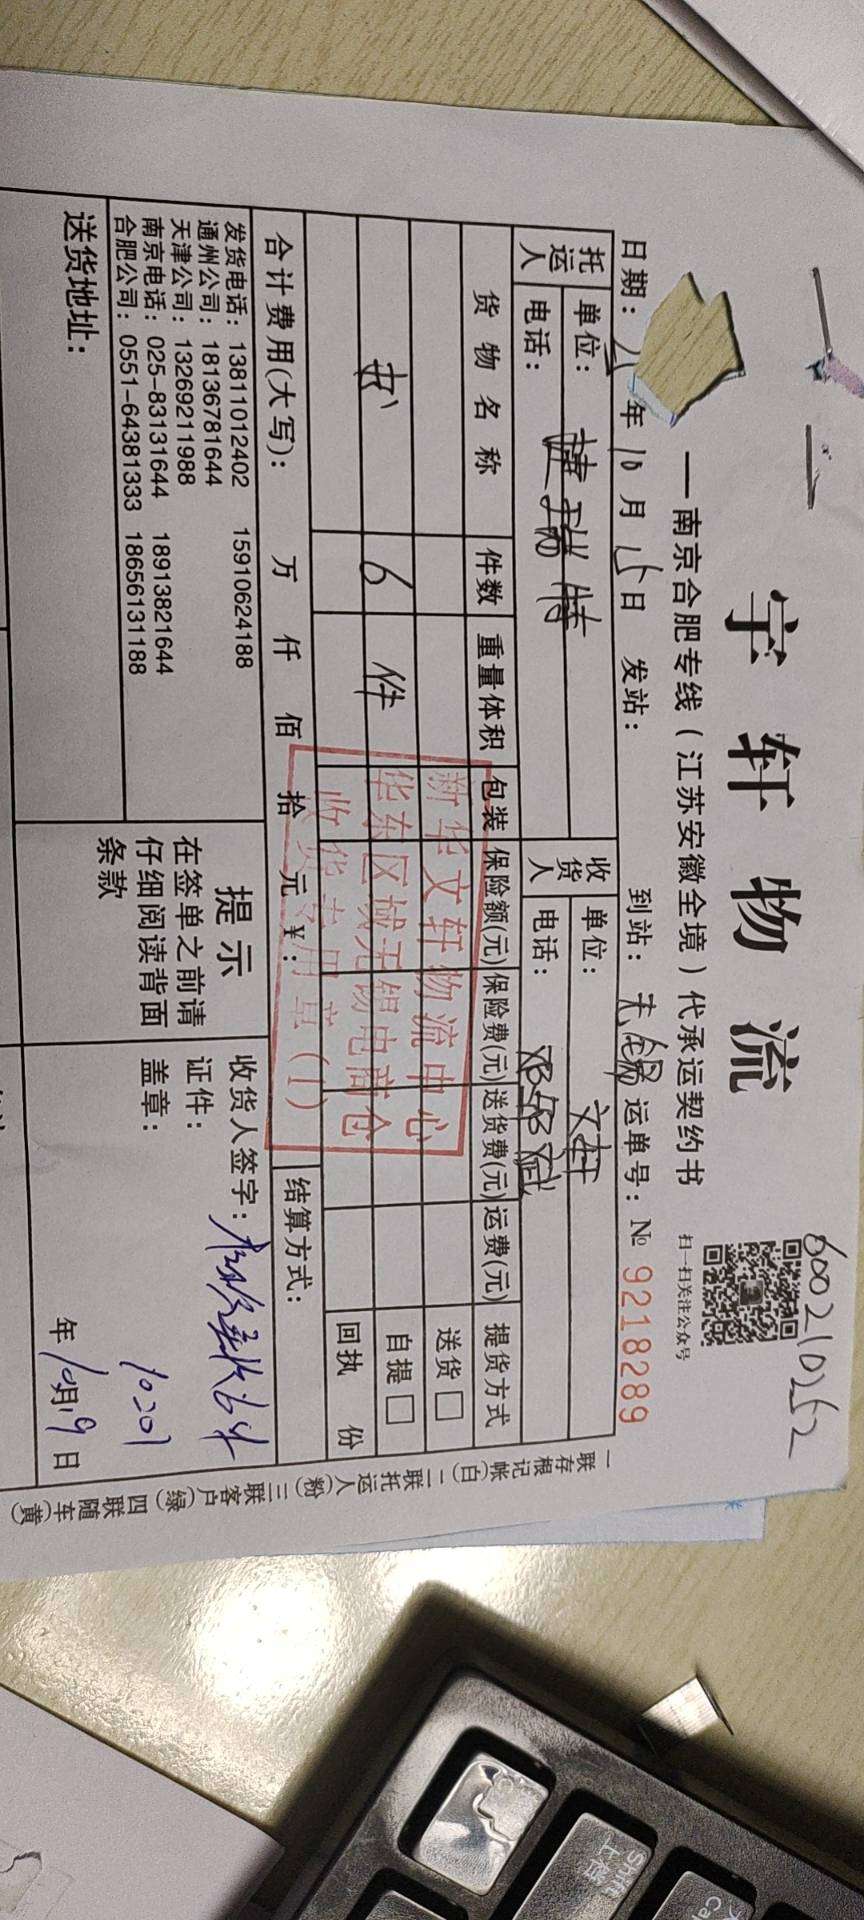 600210252
宇轩物流
扫一扫关注公众号
一南京合肥专线（江苏安徽全境）代承运契约书
日期： 年10月15日 发站： 到站：无锡 运单号：№ 9218289
托运人 单位：捷瑞特 收货人 单位：文轩
电话： 电话：
货物名称 件数 重量体积 包装 保险额(元) 保险费(元) 送货费(元) 运费(元) 提货方式
送货□
书 6 件 自提□
回执 份
新华文轩物流中心
华东区域无锡电商仓
收货专用章(1)
合计费用(大写)： 万 仟 佰 拾 元 ¥： 结算方式：
发货电话：13811012402 15910624188
通州公司：18136781644
天津公司：13269211988
南京电话：025-83131644 18913821644
合肥公司：0551-64381333 18656131188
提示
在签单之前请
仔细阅读背面
条款
收货人签字：
证件：
盖章：
年10月19日
送货地址：
一联存根记帐(白) 二联托运人(粉) 三联客户(绿) 四联随车(黄)
Shift
上档